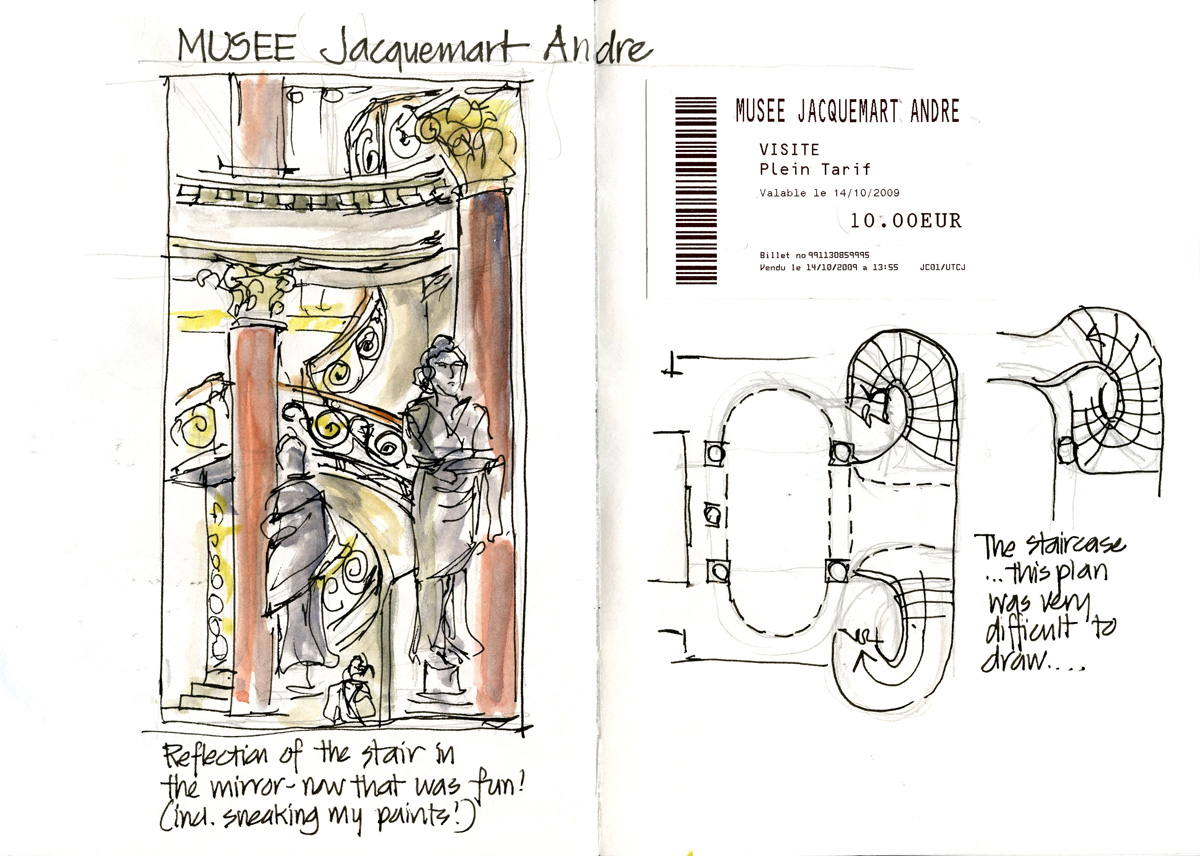 MUSEE Jacquemart Andre
Reflection of the stair in
the mirror - now that was fun!
(incl. sneaking my paints!)
MUSEE JACQUEMART ANDRE
VISITE
Plein Tarif
Valable le 14/10/2009
10.00EUR
Billet no 991130859995
Vendu le 14/10/2009 a 13:55 JC01/UTCJ
The staircase
...this plan
was very
difficult to
draw....